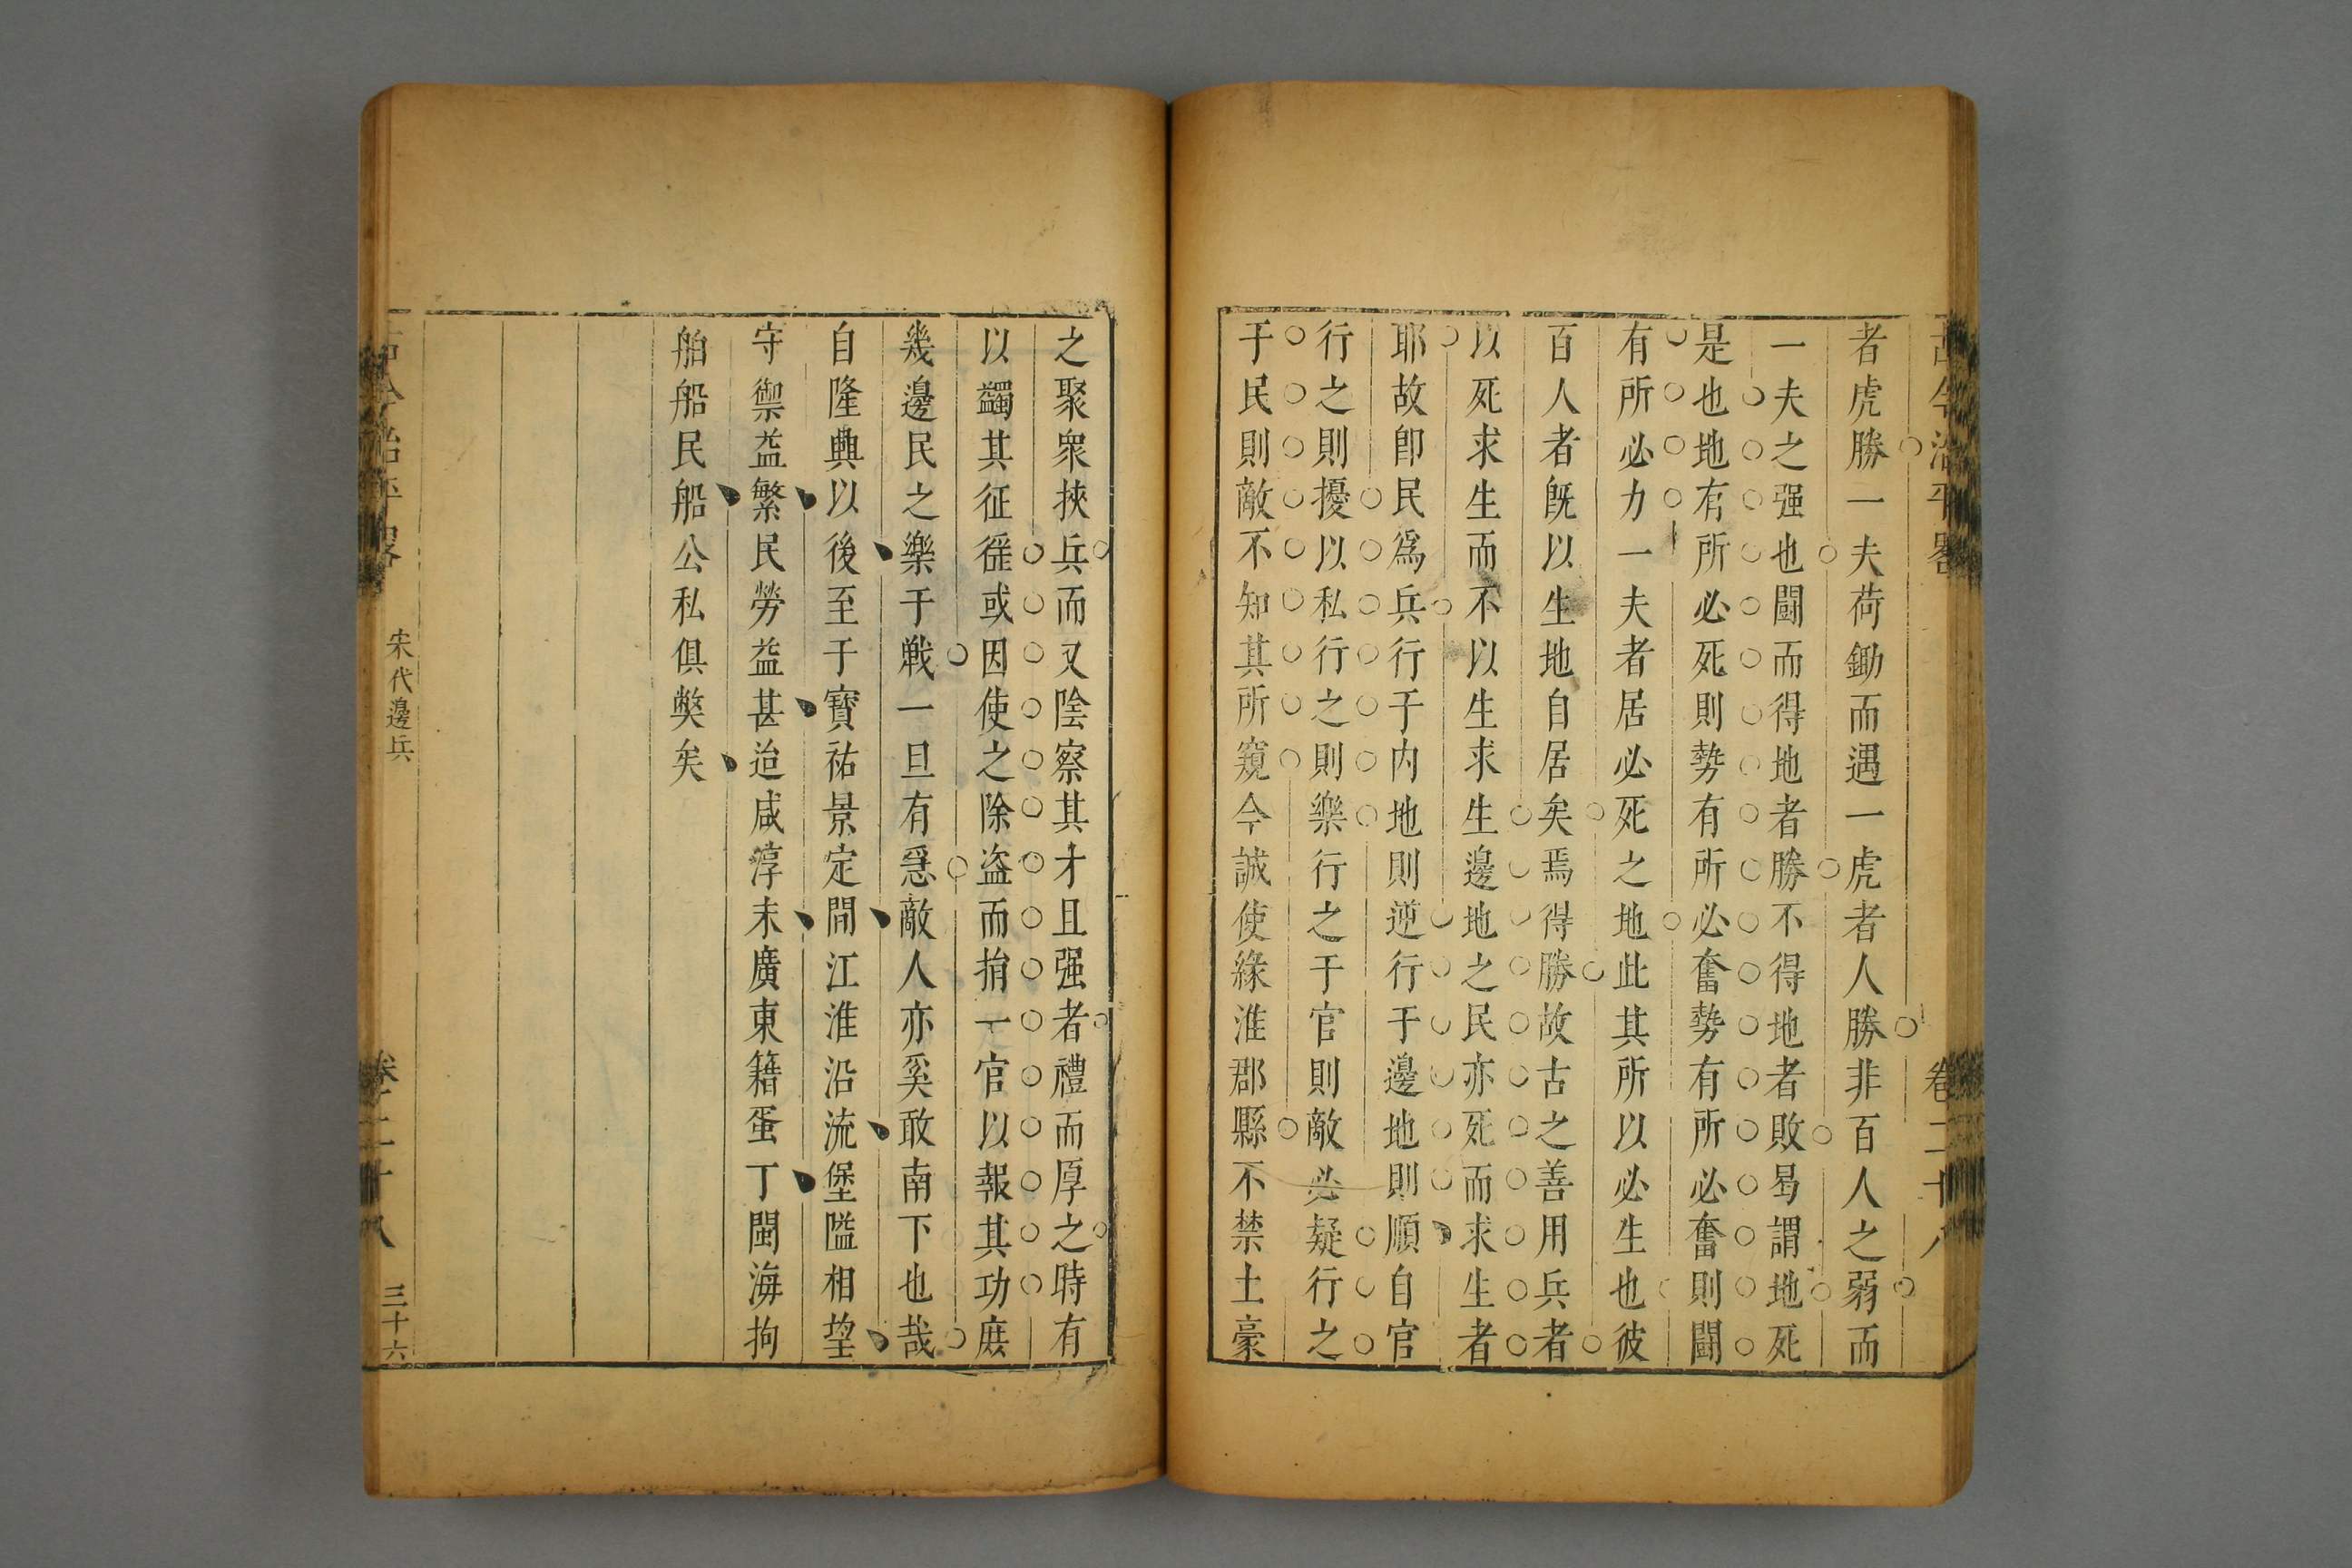 古今治平畧
卷二十八
者虎勝一夫荷鋤而遇一虎者人勝非百人之弱而
一夫之强也鬭而得地者勝不得地者敗曷謂地死
是也地有所必死則勢有所必奮勢有所必奮則鬭
有所必力一夫者居必死之地此其所以必生也彼
百人者旣以生地自居矣焉得勝故古之善用兵者
以死求生而不以生求生邊地之民亦死而求生者
耶故卽民爲兵行于内地則逆行于邊地則順自官
行之則擾以私行之則樂行之于官則敵必疑行之
于民則敵不知其所窺今誠使緣淮郡縣不禁土豪
之聚衆挾兵而又陰察其才且强者禮而厚之時有
以蠲其征徭或因使之除盗而捐一官以報其功庶
幾邊民之樂于戰一旦有急敵人亦奚敢南下也哉
自隆興以後至于寶祐景定間江淮沿流堡隘相望
守禦益繁民勞益甚迨咸淳末廣東籍蛋丁閩海拘
舶船民船公私俱獘矣
古今治平畧
宋代邊兵
卷二十八
三十六